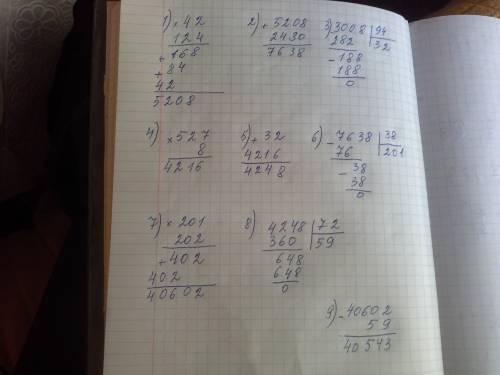 1) × 42
124
+ 168
+ 84
42
5208
2) + 5208
2430
7638
3) 3008 | 94
282 | 32
- 188
188
0
4) × 527
8
4216
5) + 32
4216
4248
6) - 7638 | 38
76 | 201
- 38
38
0
7) × 201
202
+ 402
402
40602
8) 4248 | 72
360 | 59
648
648
0
9) - 40602
59
40543